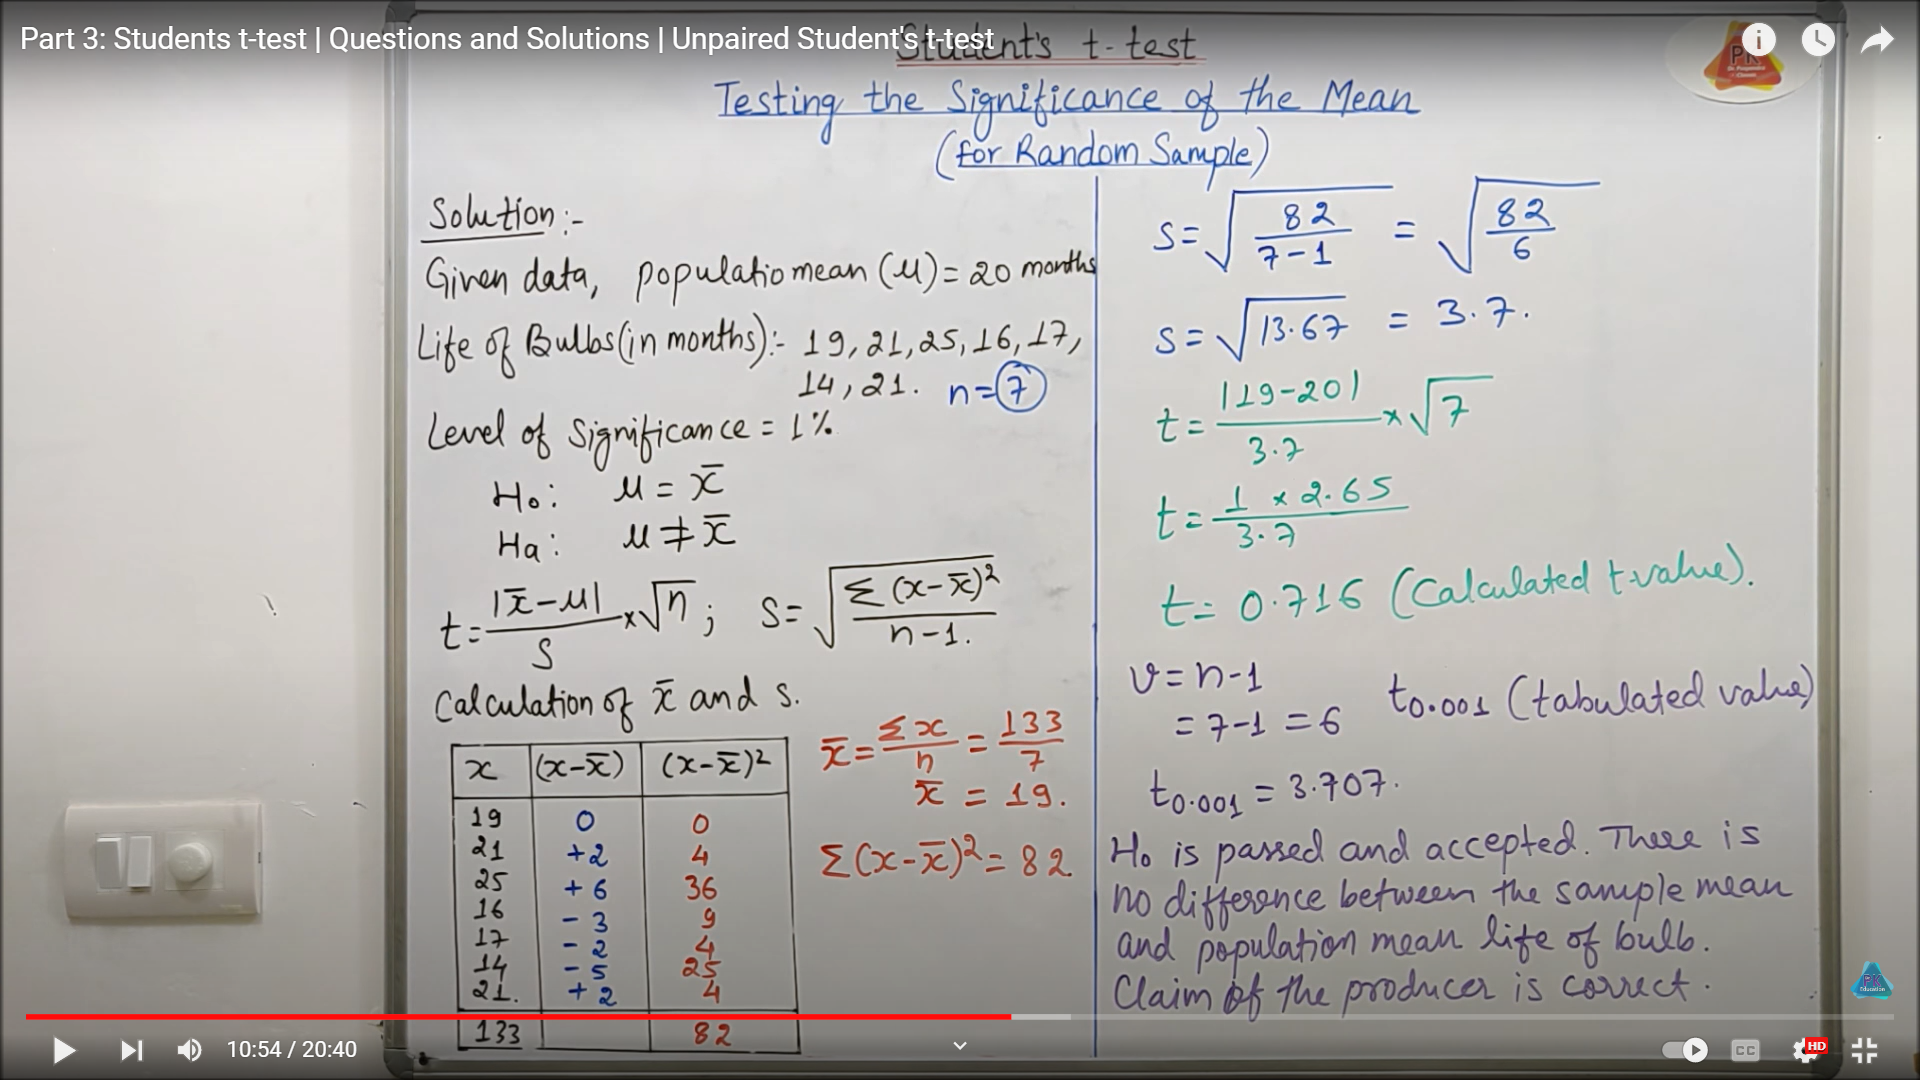 Part 3: Students t-test | Questions and Solutions | Unpaired Student's t-test
Student's t-test
Testing the Significance of the Mean
(for Random Sample)
Solution:-
Given data, populatio mean (μ) = 20 months
Life of Bulbs (in months):- 19, 21, 25, 16, 17,
14, 21. n = 7
Level of Significance = 1%
Ho: μ = x̄
Ha: μ ≠ x̄
t = |x̄ - μ| / S × √n ; S = √(Σ (x - x̄)² / n-1.)
Calculation of x̄ and s.
x (x-x̄) (x-x̄)²
19 0 0
21 +2 4
25 +6 36
16 -3 9
17 -2 4
14 -5 25
21. +2 4
133 82
x̄ = Σx / n = 133 / 7
x̄ = 19.
Σ(x-x̄)² = 82.
S = √(82 / 7-1) = √(82 / 6)
S = √13.67 = 3.7.
t = |19-20| / 3.7 × √7
t = 1 × 2.65 / 3.7
t = 0.716 (Calculated t.value).
v = n-1
= 7-1 = 6 t0.001 (tabulated value)
t0.001 = 3.707.
Ho is passed and accepted. There is
no difference between the sample mean
and population mean life of bulb.
Claim of the producer is correct.
PK
PK
Education
10:54 / 20:40
CC
HD